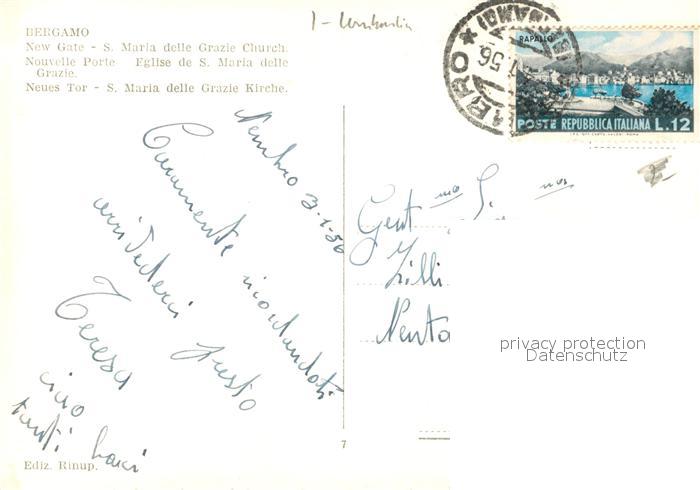 I - Lombardia
BERGAMO
New Gate - S. Maria delle Grazie Church.
Nouvelle Porte Eglise de S. Maria delle
Grazie.
Neues Tor - S. Maria delle Grazie Kirche.
RAPALLO
POSTE REPUBBLICA ITALIANA L.12
Nembro 3-1-56
Caramente ricordandoti
arrivederci presto
Teresa
ciao
tanti baci
Gent.ma S.
Lilli
privacy protection
Datenschutz
7
Ediz. Rinup.